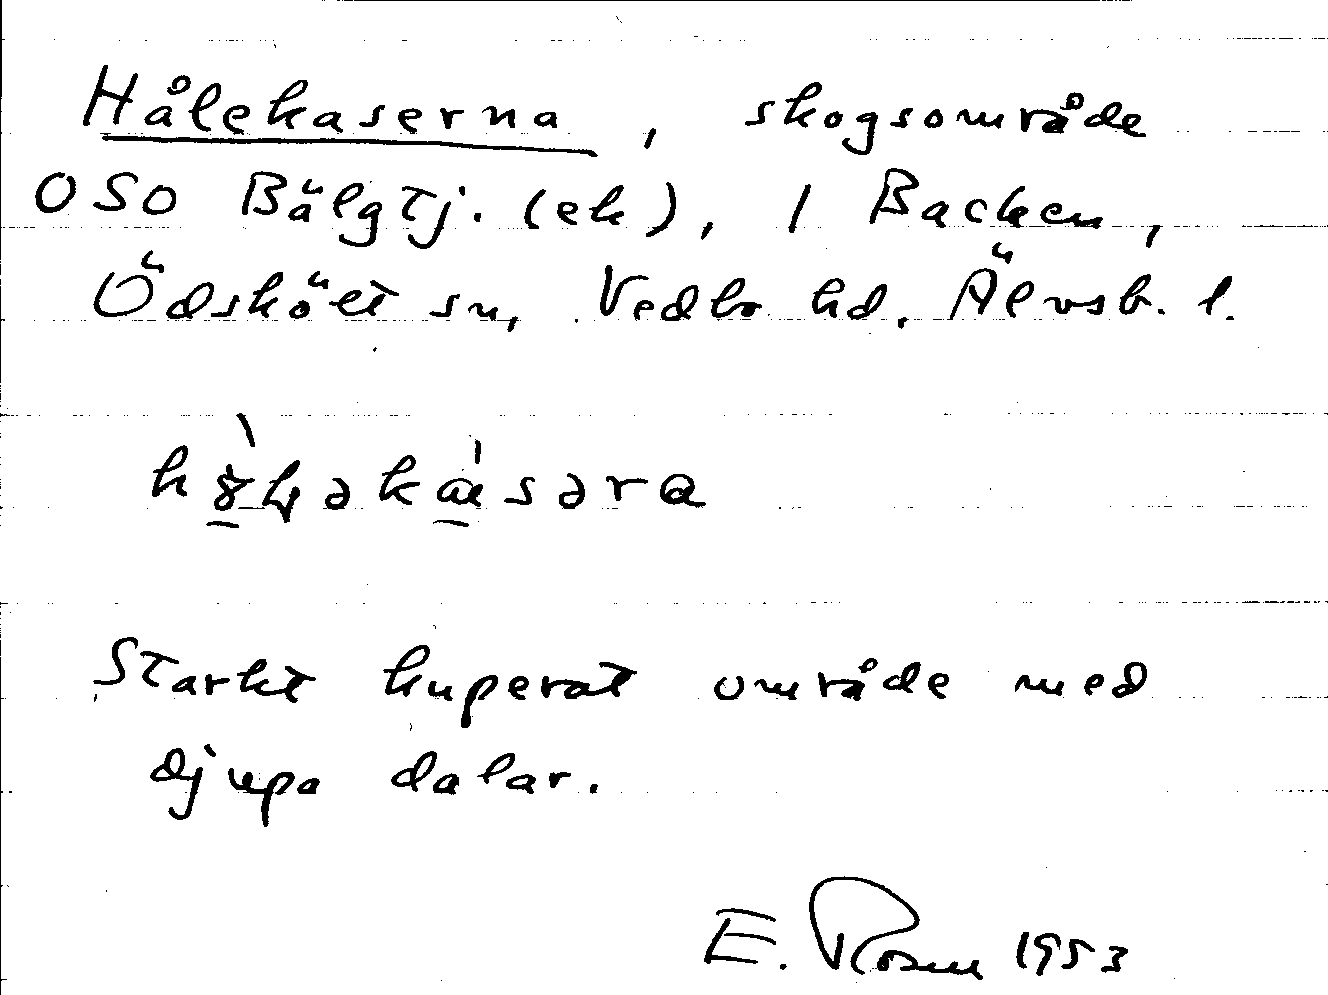 Hålekaserna, skogsområde
OSO Bälgtj. (ek), 1 Backen,
Ödskölt sn, Vedbo hd. Älvsb. l.
Starkt kuperat område med
djupa dalar.
E. Rosen 1953